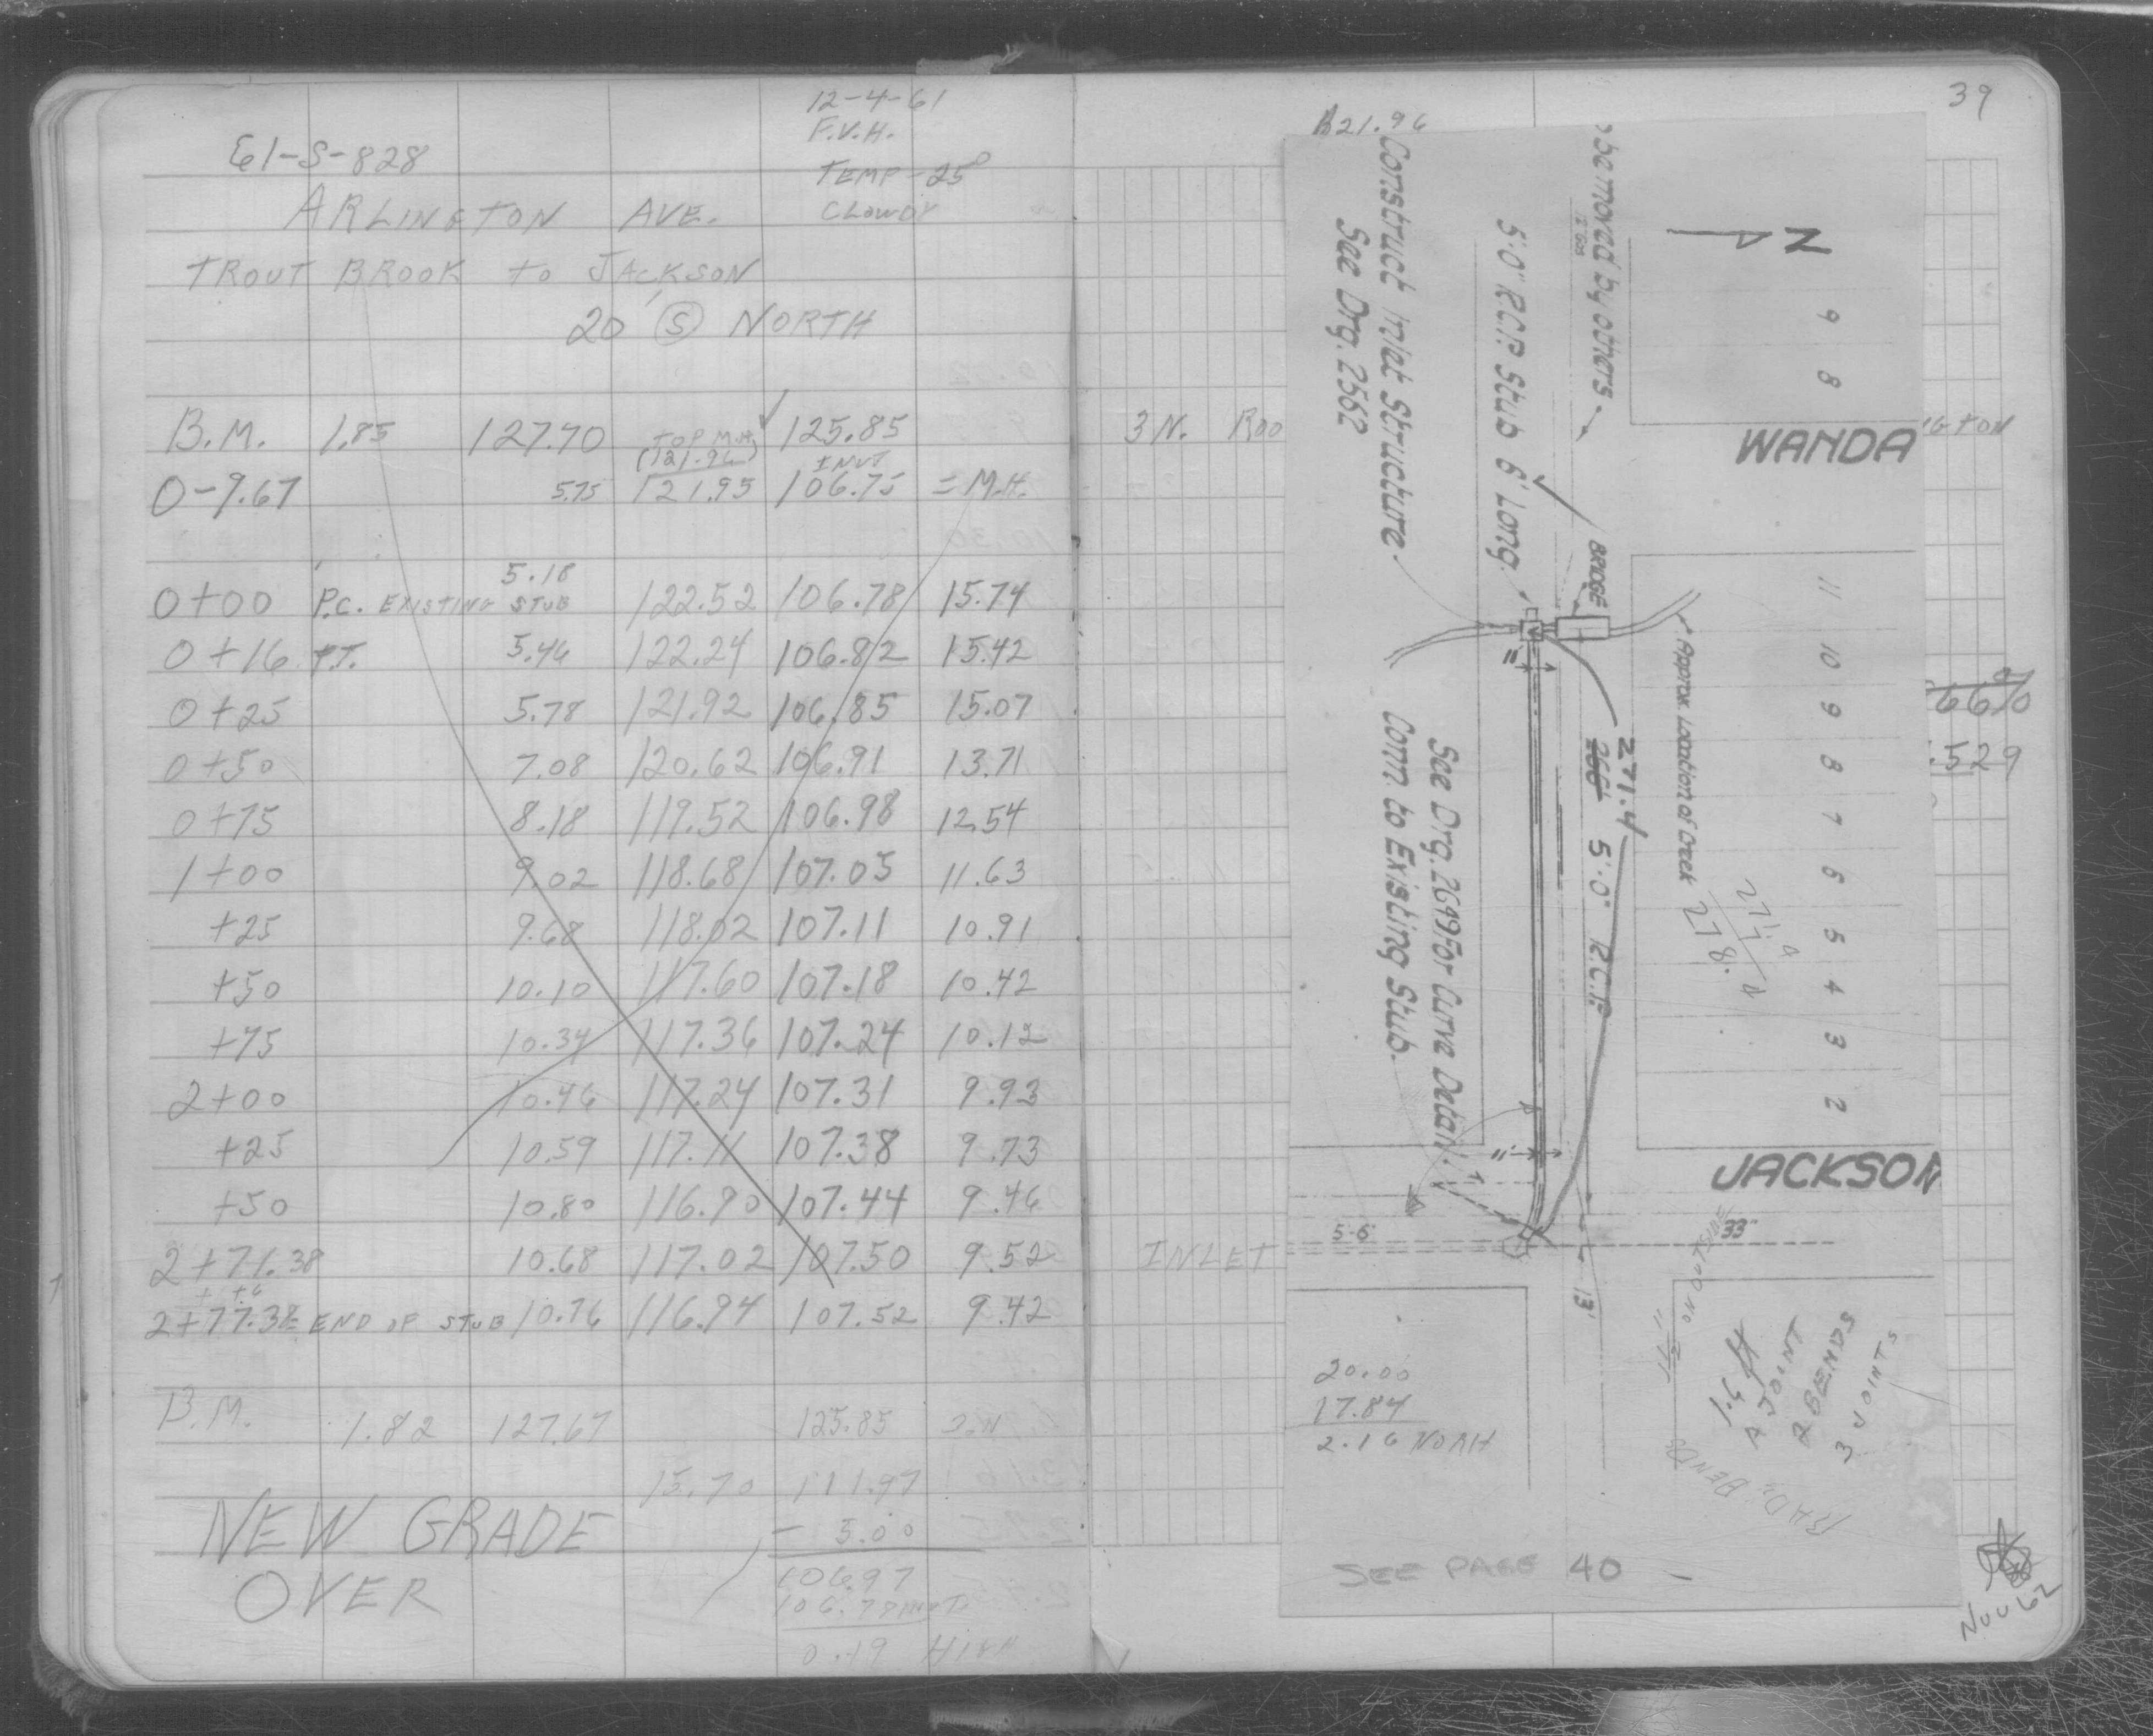 12-4-61
F.V.H.
61-S-828
TEMP-25°
ARLINGTON AVE.
CLOWDY
TROUT BROOK to JACKSON
20' Ⓢ NORTH
B.M. 1.85 127.70 ✓ 125.85
TOP M.H.
(121.96) INVT
0-9.67 5.75 121.95 106.75 = M.H.
5.18
0+00 P.C. EXISTING STUB 122.52 106.78 15.74
0+16 P.T. 5.46 122.24 106.82 15.42
0+25 5.78 121.92 106.85 15.07
0+50 7.08 120.62 106.91 13.71
0+75 8.18 119.52 106.98 12.54
1+00 9.02 118.68 107.05 11.63
+25 9.68 118.02 107.11 10.91
+50 10.10 117.60 107.18 10.42
+75 10.34 117.36 107.24 10.12
2+00 10.46 117.24 107.31 9.93
+25 10.59 117.11 107.38 9.73
+50 10.80 116.90 107.44 9.46
2+71.38 10.68 117.02 107.50 9.52
+6
2+77.38= END OF STUB 10.76 116.94 107.52 9.42
B.M. 1.82 127.67 125.85 3.N
15.70 111.97
NEW GRADE
- 5.00
OVER
106.97
106.78 INVT
0.19 HIGH
39
121.96
3 N. ROO
GTON
66%
.529
INLET
Construct Inlet Structure
See Drg. 2562
5'0" R.C.P. Stub 6' Long
be moved by others
N
9
8
WANDA
BRIDGE
11
10
9
8
7
6
5
4
3
2
Approx. Location of Creek
11'
271.4
266'
5'0" R.C.P.
271.
278.
See Drg. 2649 For Curve Detail
Conn. to Existing Stub.
11'
JACKSON
5'-6"
33"
13'
NO OUTSIDE
20.00
17.84
2.16 NORH
A JOINT
2 BENDS
3 JOINTS
RAD. BENDS
SEE PAGE 40
NOV 62